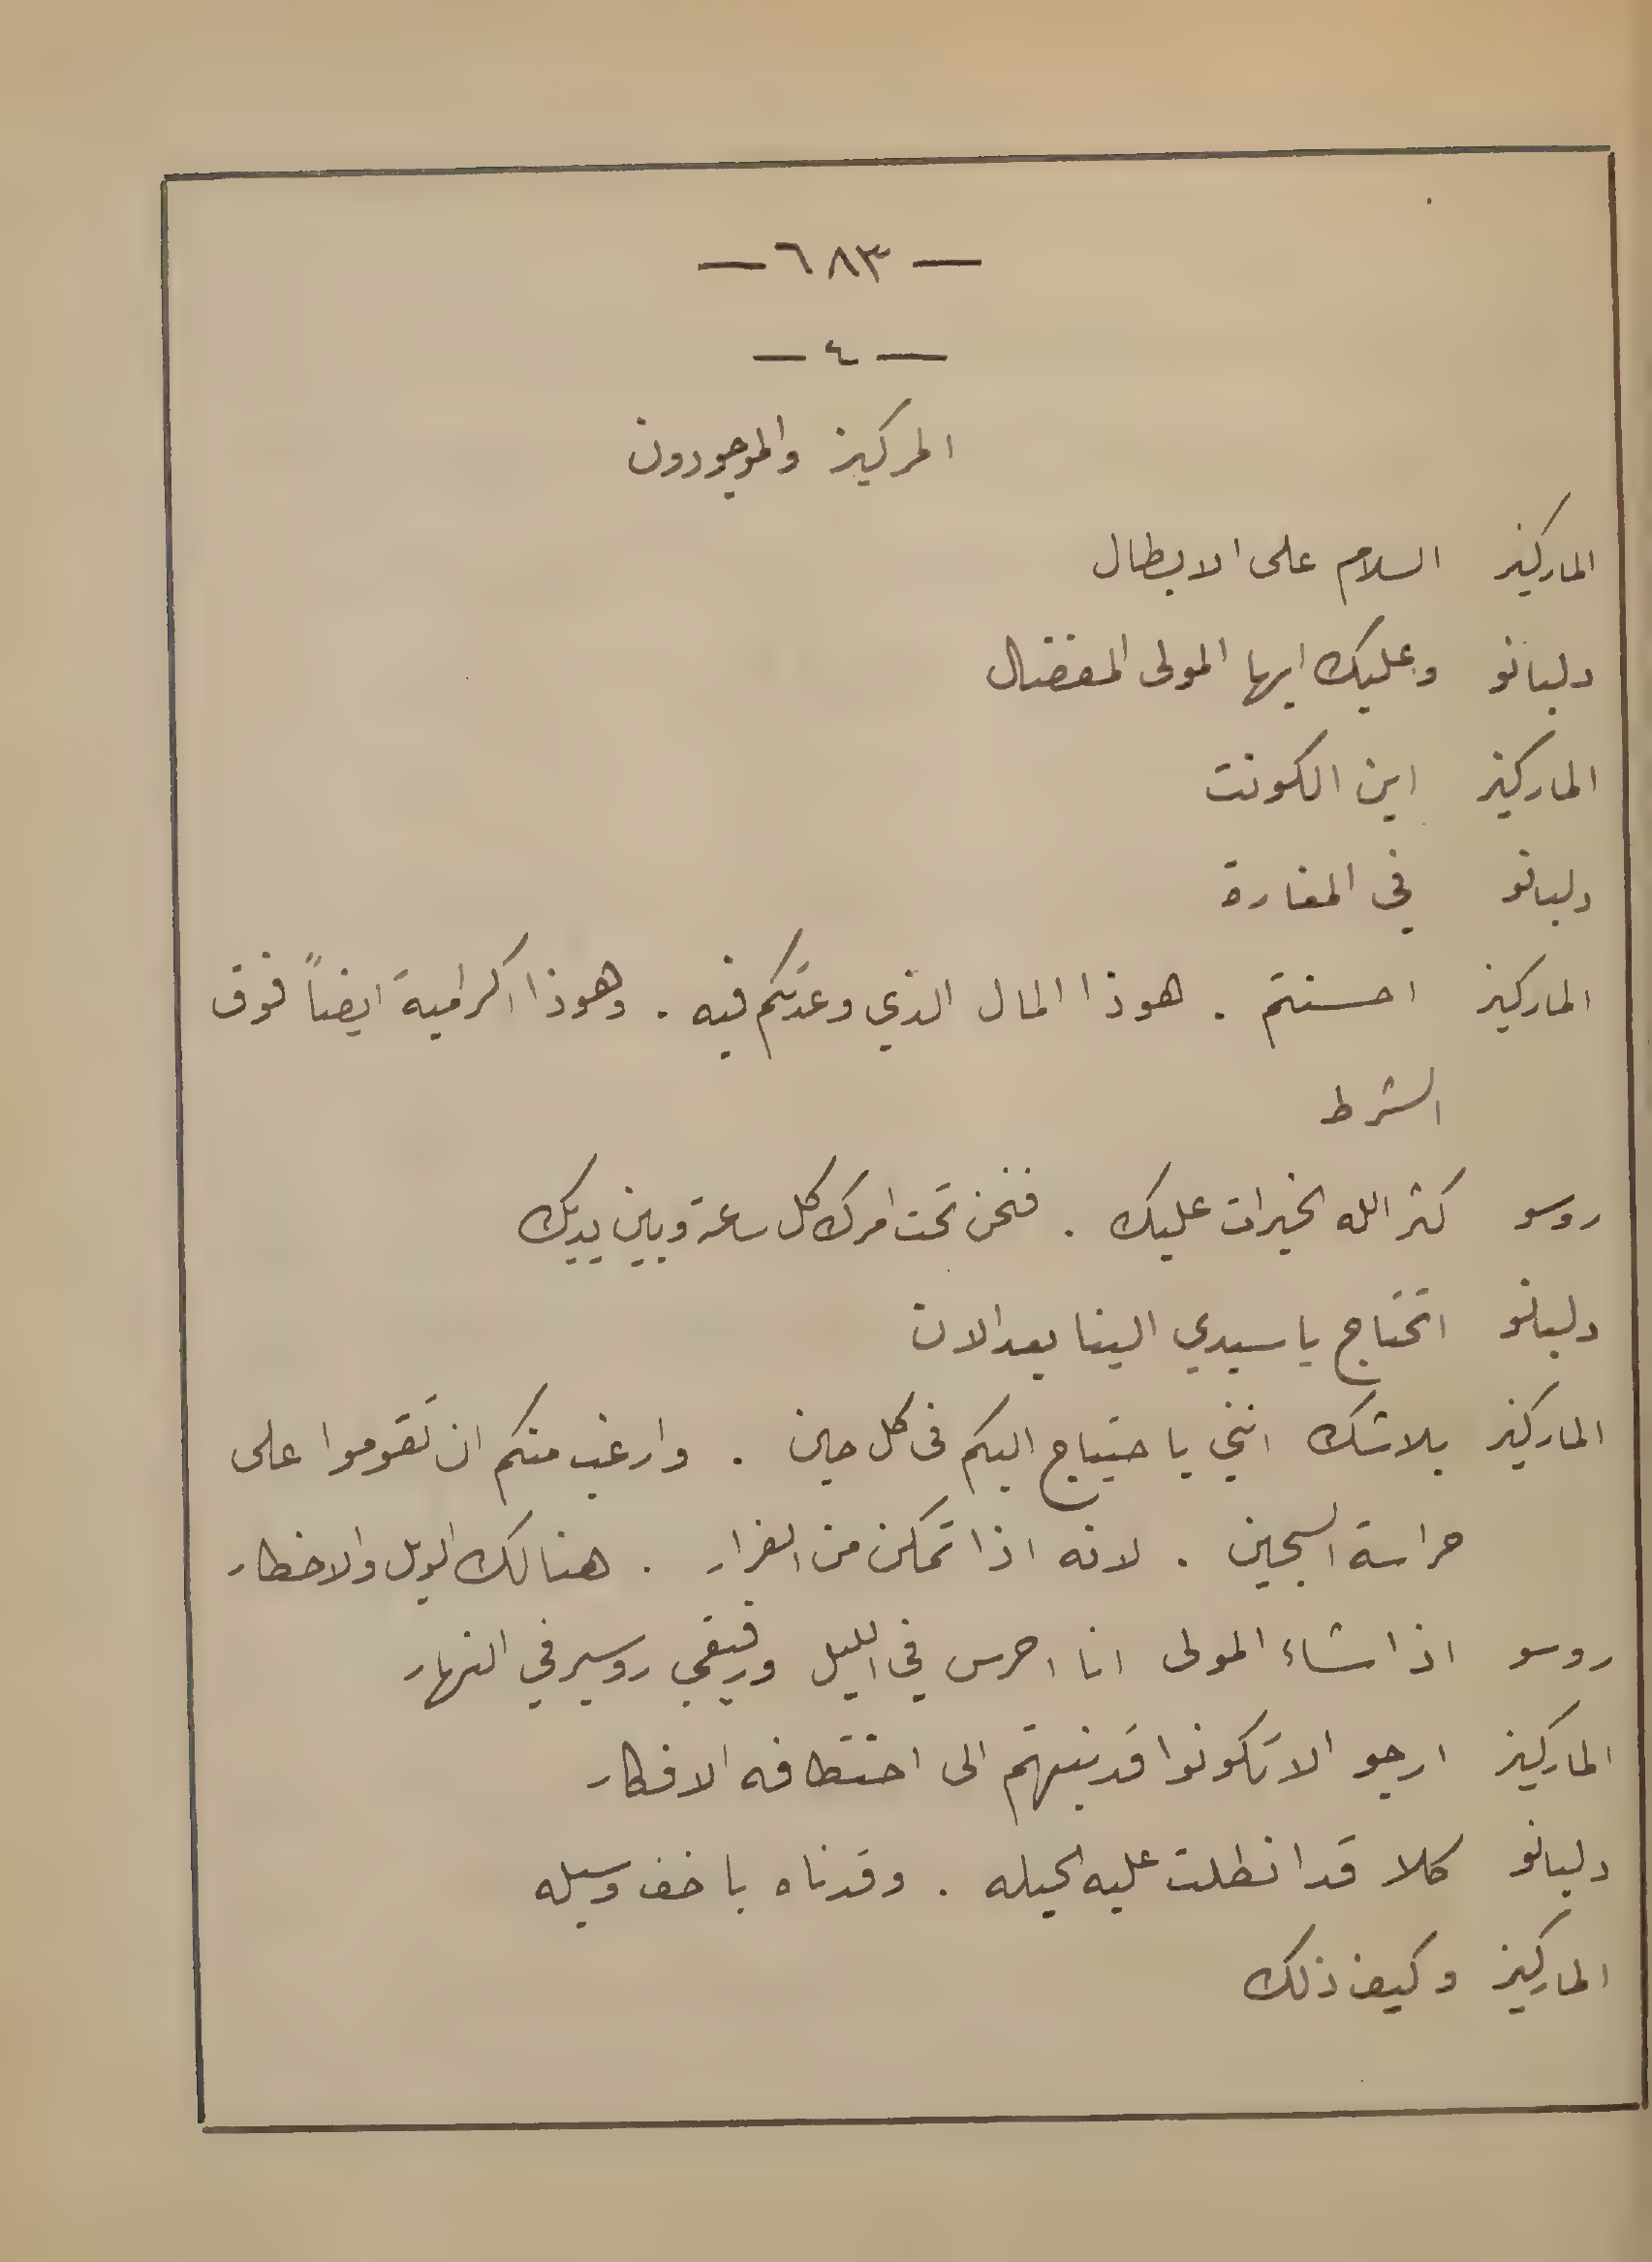 — ٦٨٣ —
— ٤ —
المركيز والموجودون
الماركيز السلام على الابطال
دلبانو وعليك ايها المولى المفضال
الماركيز اين الكونت
دلبانو في المغارة
الماركيز احسنتم . هوذا المال الذي وعدتكم فيه . وهوذا اكرامية ايضاً فوق
الشرط
روسو كثر الله الخيرات عليك . فنحن تحت امرك كل ساعة وبين يديك
دلبانو اتحتاج يا سيدي الينا بعد الان
الماركيز بلا شك انني باحتياج اليكم في كل حين . وارغب منكم ان تقوموا على
حراسة السجين . لانه اذا تمكن من الفرار . هنالك الويل والاخطار
روسو اذا شاء المولى انا احرس في الليل ورفيقي روسير في النهار
الماركيز ارجو الا تكونوا قد نبهتم الى اختطافه الافكار
دلبانو كلا قد انطلت عليه الحيله . وقدناه باخف وسيله
الماركيز وكيف ذلك